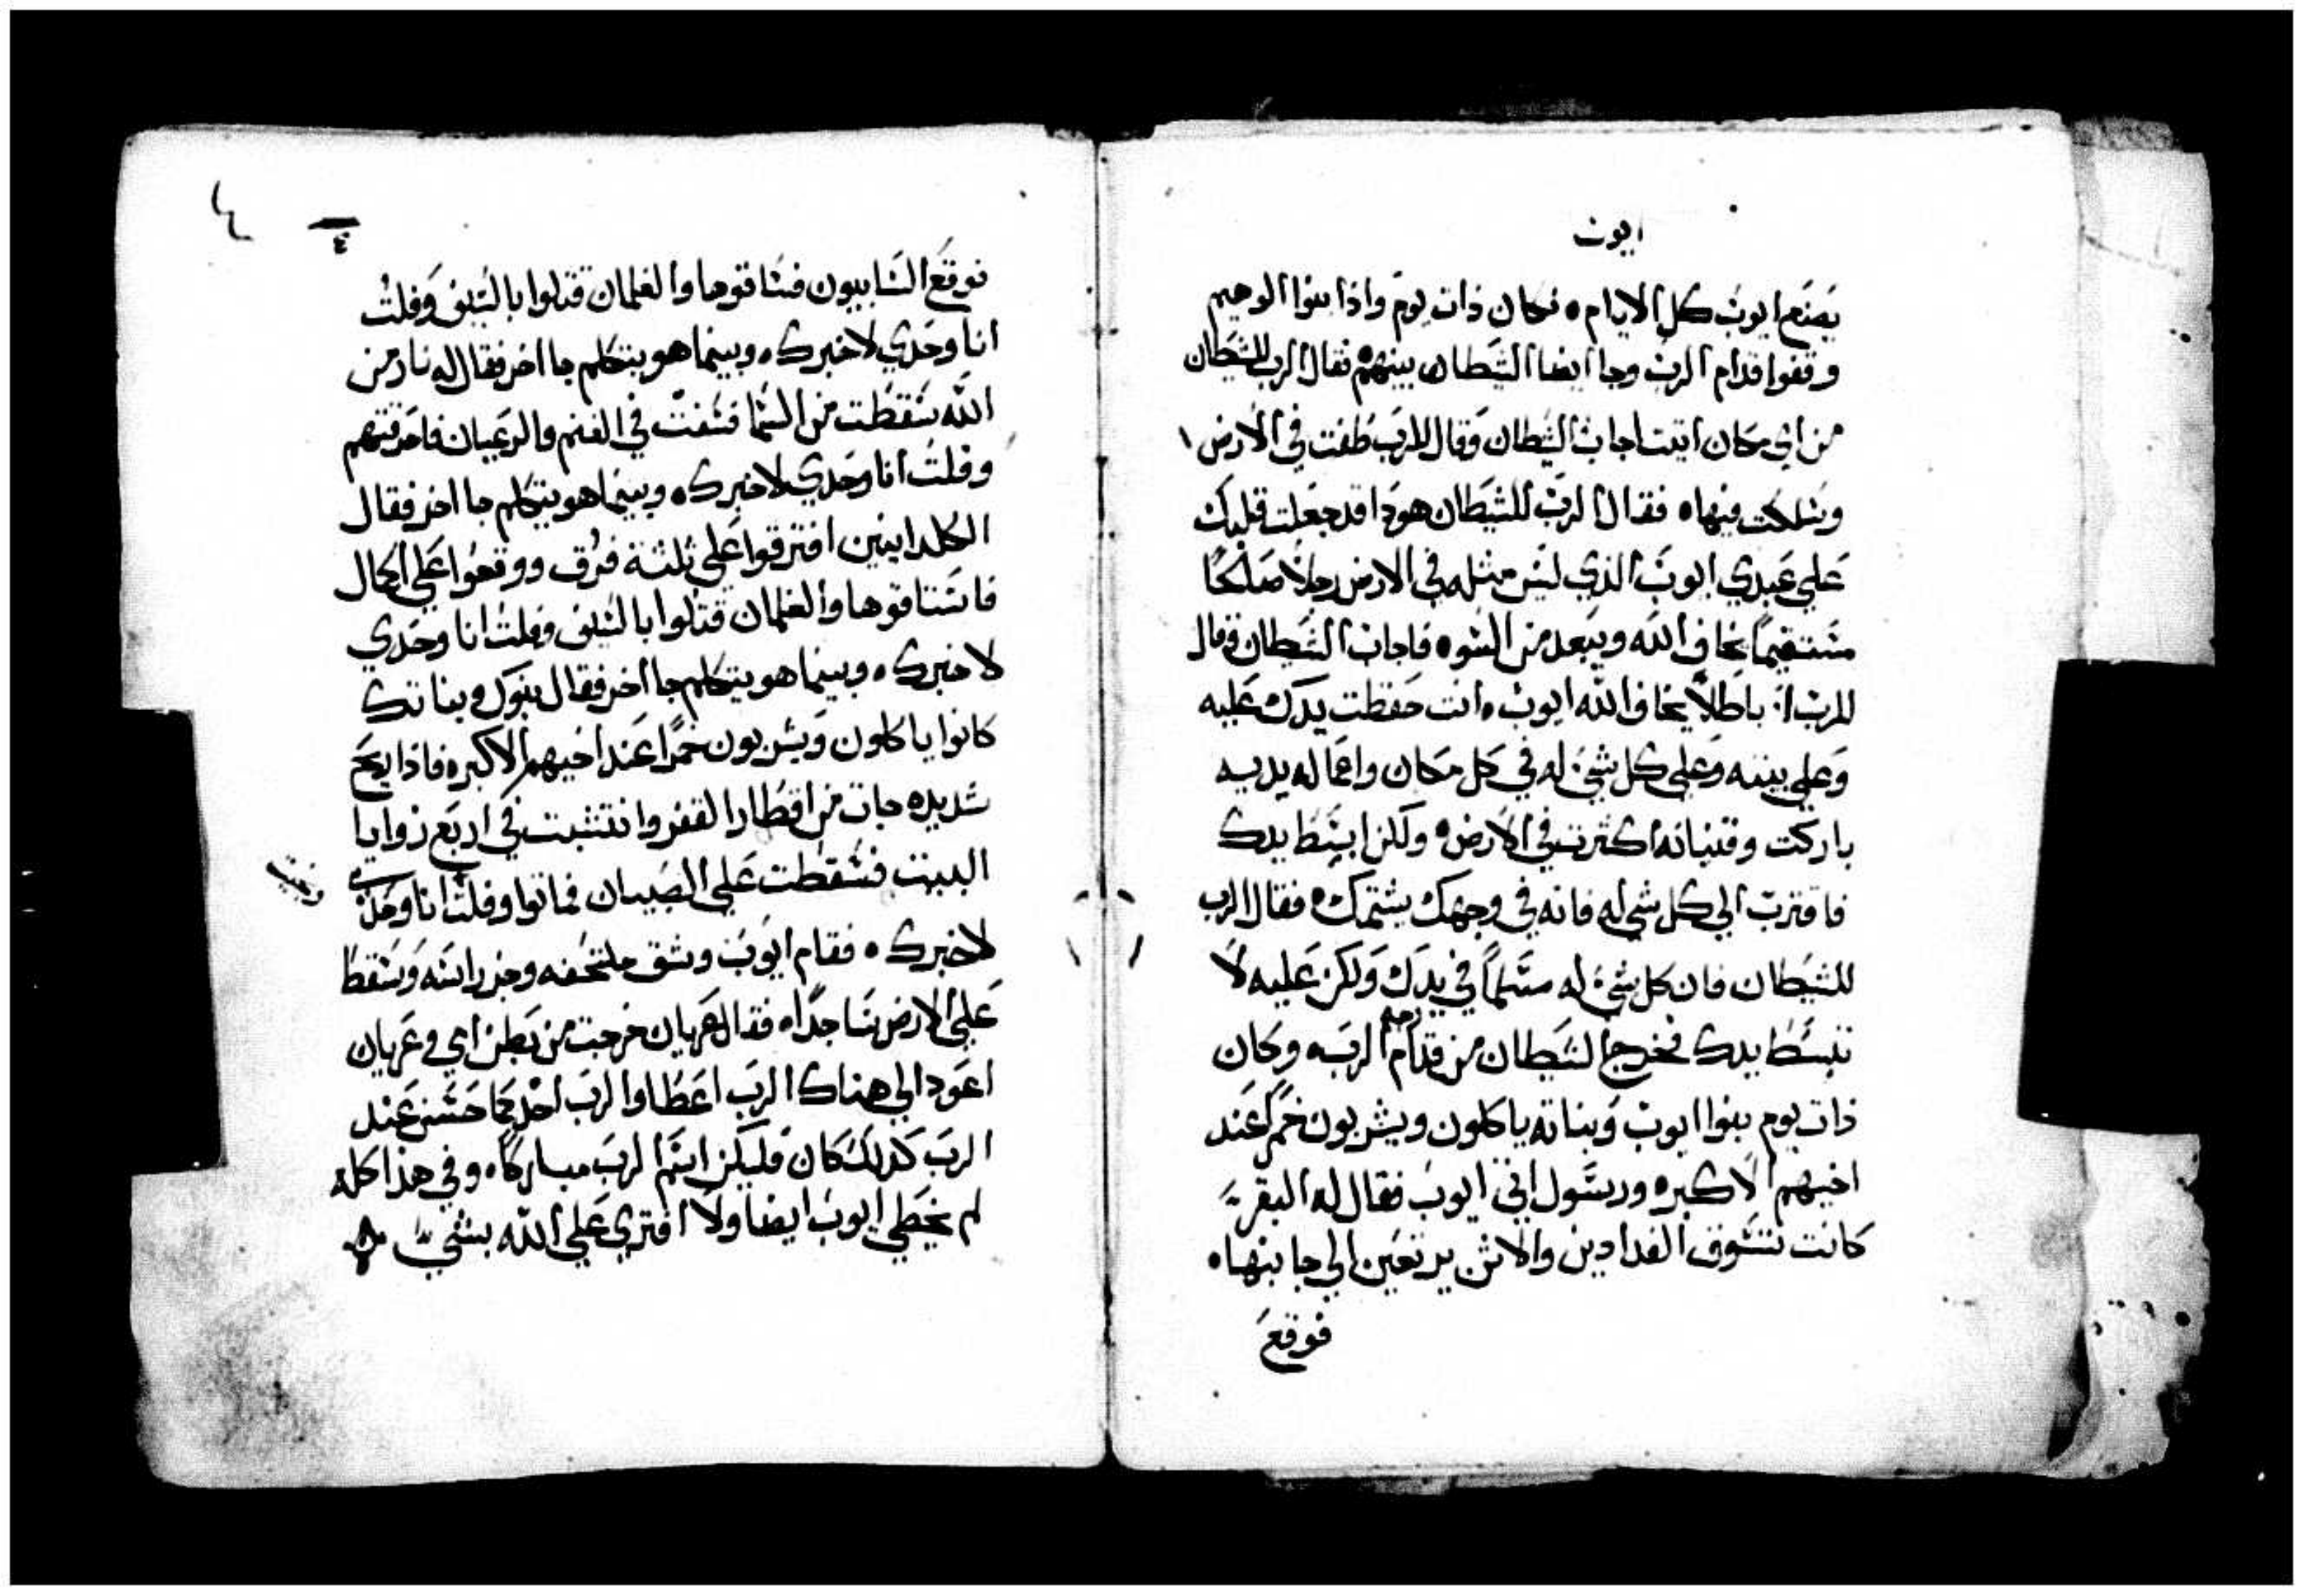 ايوب
يصنع ايوب كل الايام ٥ فكان ذات يوم واذا بنوا الوهيم
وقفوا قدام الرب وجا ايضا الشيطان بينهم فقال الرب للشيطان
من اي مكان اتيت اجاب الشيطان وقال للرب طفت في الارض
وسلكت فيها ٥ فقال الرب للشيطان هوذا قد جعلت قلبك
علي عبدي ايوب الذي ليس مثله في الارض رجلاً صالحًا
مستقيمًا يخاف الله ويبعد من السوء فاجاب الشيطان وقال
للرب ان باطلاً يخاف الله ايوب وانت حفظت يدك عليه
وعلي بيته وعلي كل شيء له في كل مكان واعماله يديه
باركت وقنيانه اكثرت في الارض ٥ ولكن ابسط يدك
فاقترب الي كل شي له فانه في وجهك يشتمك ٥ فقال الرب
للشيطان فان كل شيء له مسلماً في يدك ولكن عليه لا
تبسط يدك فخرج الشيطان من قدام الرب ٥ وكان
ذات يوم بنوا ايوب وبناته ياكلون ويشربون خمرًا عند
اخيهم الاكبر ٥ ورسول اتي ايوب فقال له البقر
كانت تسوق الفدادين والاتن يرتعين الي جانبها ٥
فوقع
٤
فوقع السابيون فساقوها والغلمان قتلوا بالسيف وفلت
انا وحدي لاخبرك ٥ وبينما هو يتكلم جا اخر فقال له نار من
الله سقطت من السما فسفت في الغنم والرعيان فاحرقتهم
وفلت انا وحدي لاخبرك ٥ وبينما هو يتكلم جا اخر فقال
الكلدانيين افترقوا علي ثلثة فرق ووقعوا علي الجمال
فاستاقوها والغلمان قتلوا بالسيف وفلت انا وحدي
لاخبرك ٥ وبينما هو يتكلم جا اخر فقال بنوك وبناتك
كانوا ياكلون ويشربون خمرًا عند اخيهم الاكبر ٥ فاذا بريح
شديده جات من اقطار القفر وانتشبت في اربع زوايا
البيت فسقطت علي الصبيان فماتوا وفلت انا وحدي
لاخبرك ٥ فقام ايوب وشق ملتحفه وجز راسه وسقط
علي الارض ساجدًا ٥ فقال عريان خرجت من بطن امي وعريان
اعود الي هناك الرب اعطا والرب اخذ كما حسن عند
الرب كذلك كان فليكن اسم الرب مباركًا ٥ وفي هذا كله
لم يخطي ايوب ايضا ولا افتري علي الله بشي